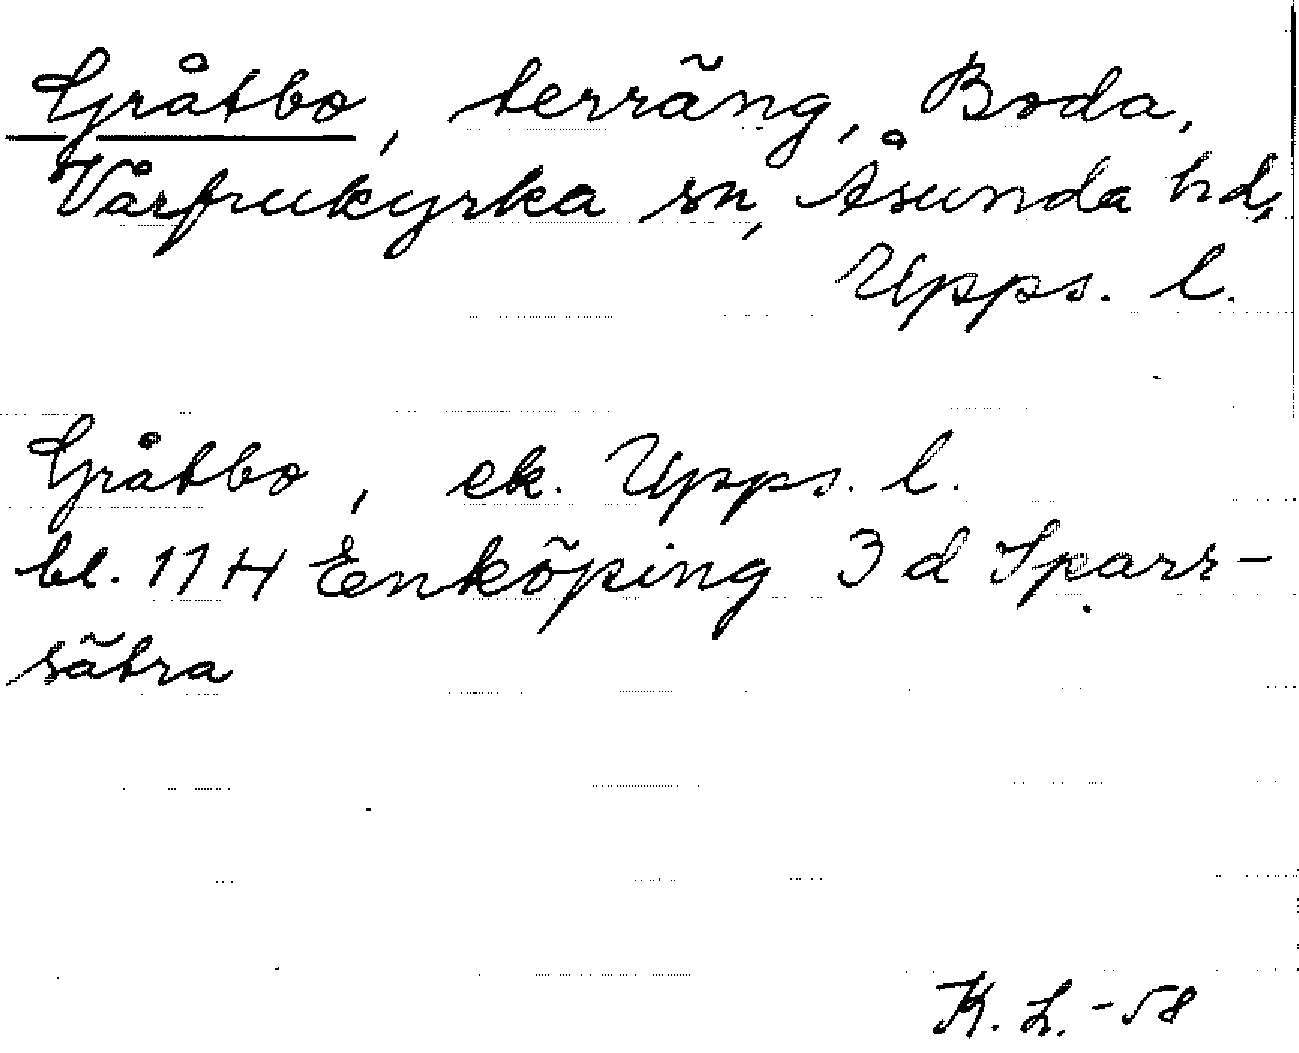 Gråtbo, terräng, Boda,
Vårfrukyrka sn, Åsunda hd,
Upps. l.
Gråtbo, ek. Upps. l.
bl. 11 H Enköping 3 d Sparr-
sätra
K. L. -58